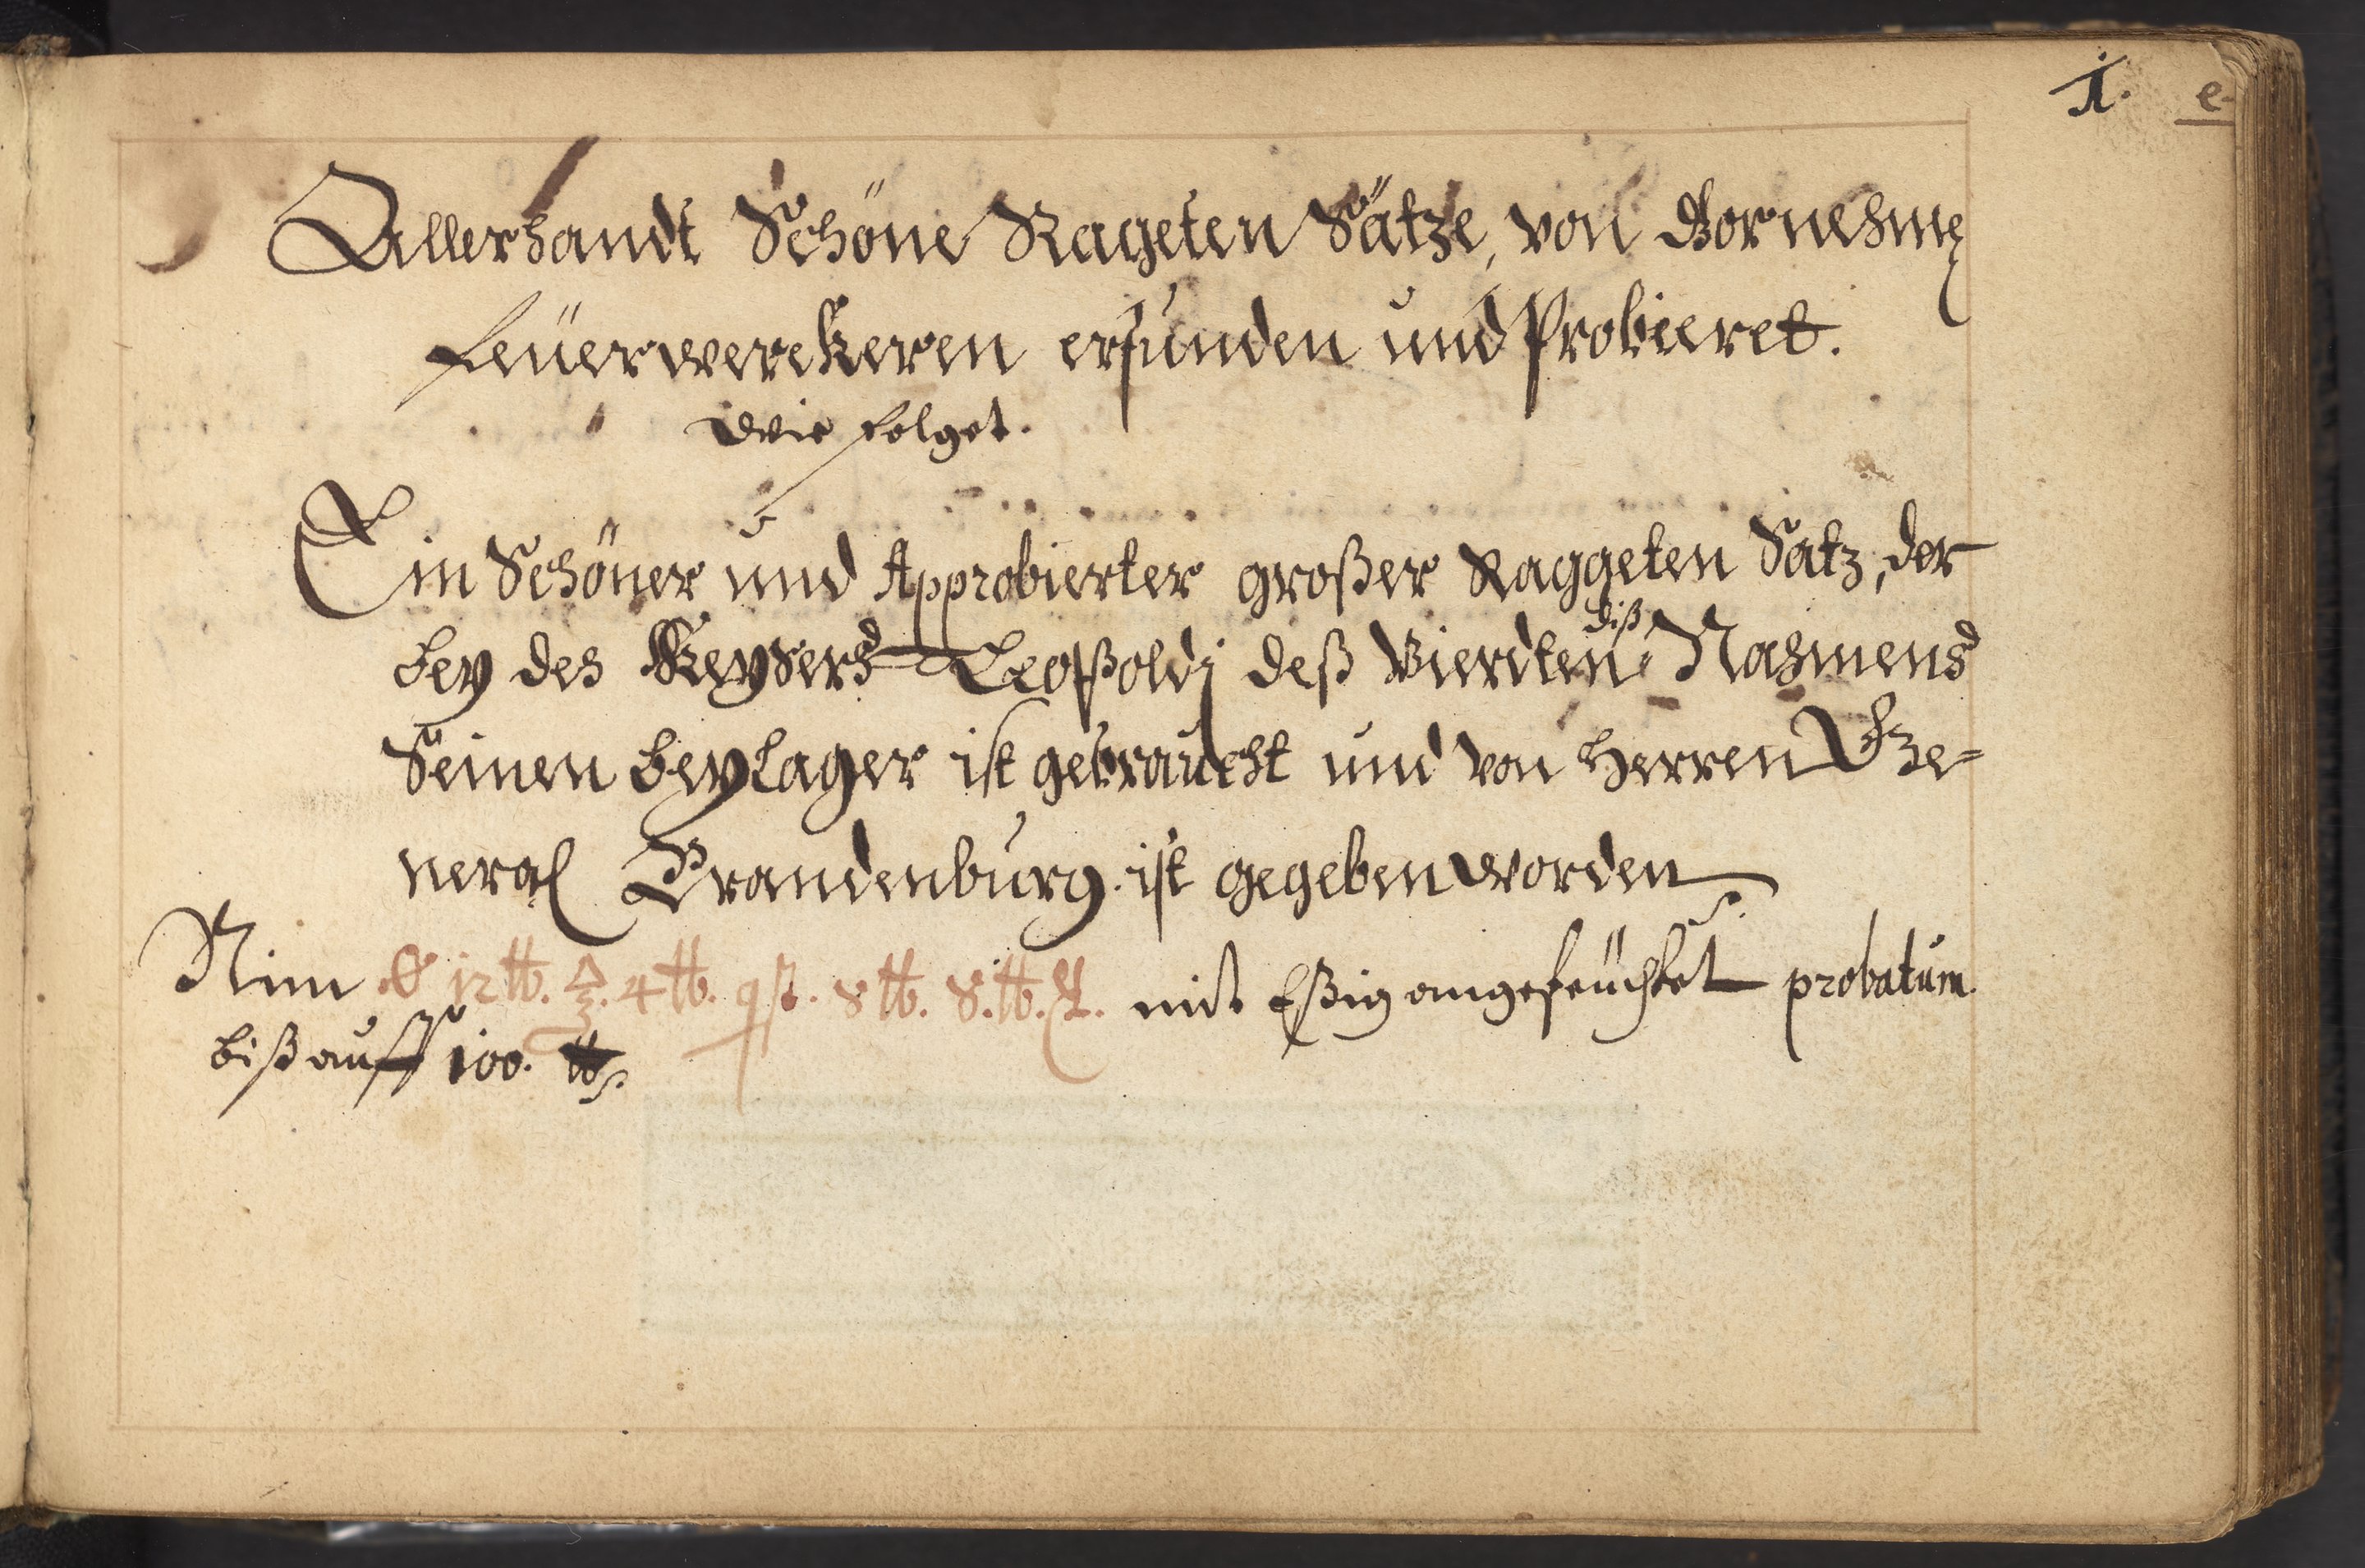 1. e
Allerhandt Schöne Rageten Sätze, von Vornehmē
feüerwerckeren erfunden und Probieret.
Wie folget.
Ein Schöner und Approbierter großer Raggeten Satz, der
bey des Keysers Leopoldj deß Vierdten diß Nahmens
Seinen beylager ist gebraucht und von Herren Ge=
neral Brandenburg ist gegeben worden
Nim 12 ℔. 4 ℔. 8 ℔. 8. ℔. mit Eßig angefeuchtet probatum.
biß auff 100. ℔